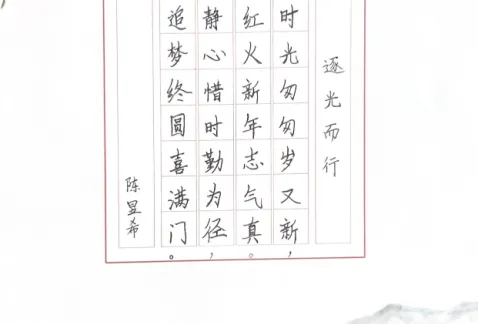 逐光而行
时光匆匆岁又新，
红火新年志气真。
静心惜时勤为径，
追梦终圆喜满门。
陈昱希